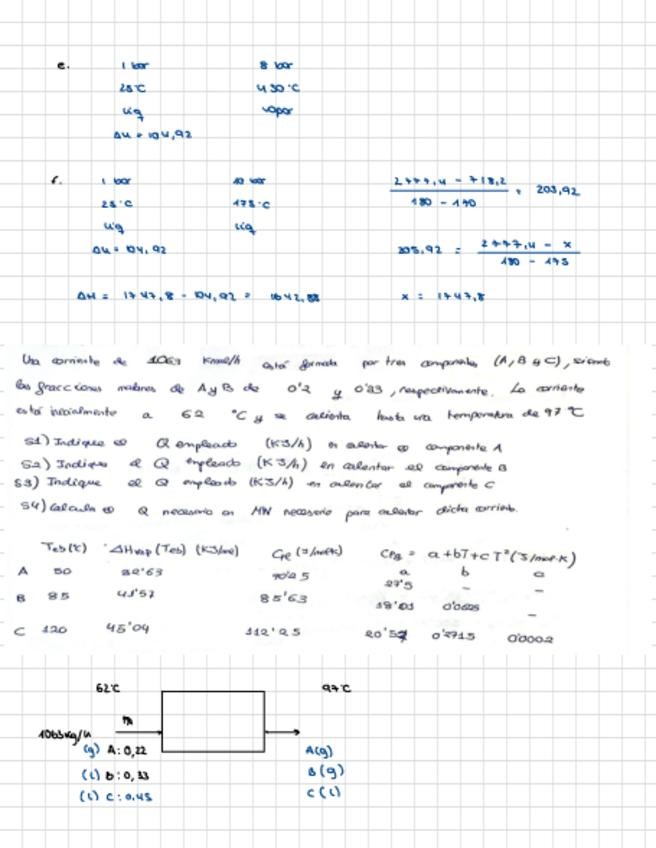 e. 1 bar 8 bar
25°C 430°C
liq vapor
Δu = 104,92
f. 1 bar 10 bar
25°C 175°C
liq liq
Δu = 104,92
2777,4 - 718,2 / 180 - 170 = 203,92
205,92 = 2777,4 - x / 180 - 175
ΔH = 1747,8 - 104,92 = 1642,88 x = 1747,8
Una corriente de 1063 Kmol/h está formada por tres componentes (A, B y C), siendo
las fracciones molares de A y B de 0'2 y 0'33, respectivamente. La corriente
está inicialmente a 62 °C y se calienta hasta una temperatura de 97 °C
S1) Indique el Q empleado (KJ/h) en calentar el componente A
S2) Indique el Q empleado (KJ/h) en calentar el componente B
S3) Indique el Q empleado (KJ/h) en calentar el componente C
S4) Calcula el Q necesario en MW necesario para calentar dicha corriente.
Teb (°C) ΔHvap (Teb) (KJ/mol) CpL (J/molK) Cpg = a+bT+cT² (J/mol·K)
a b c
A 50 32'63 70'25 27'5 - -
B 85 41'57 85'63 18'01 0'0625 -
C 120 45'04 112'25 20'57 0'2715 0'0002
62°C 97°C
1063kg/h
(g) A: 0,22 A(g)
(l) b: 0,33 B(g)
(l) C: 0,45 C(l)